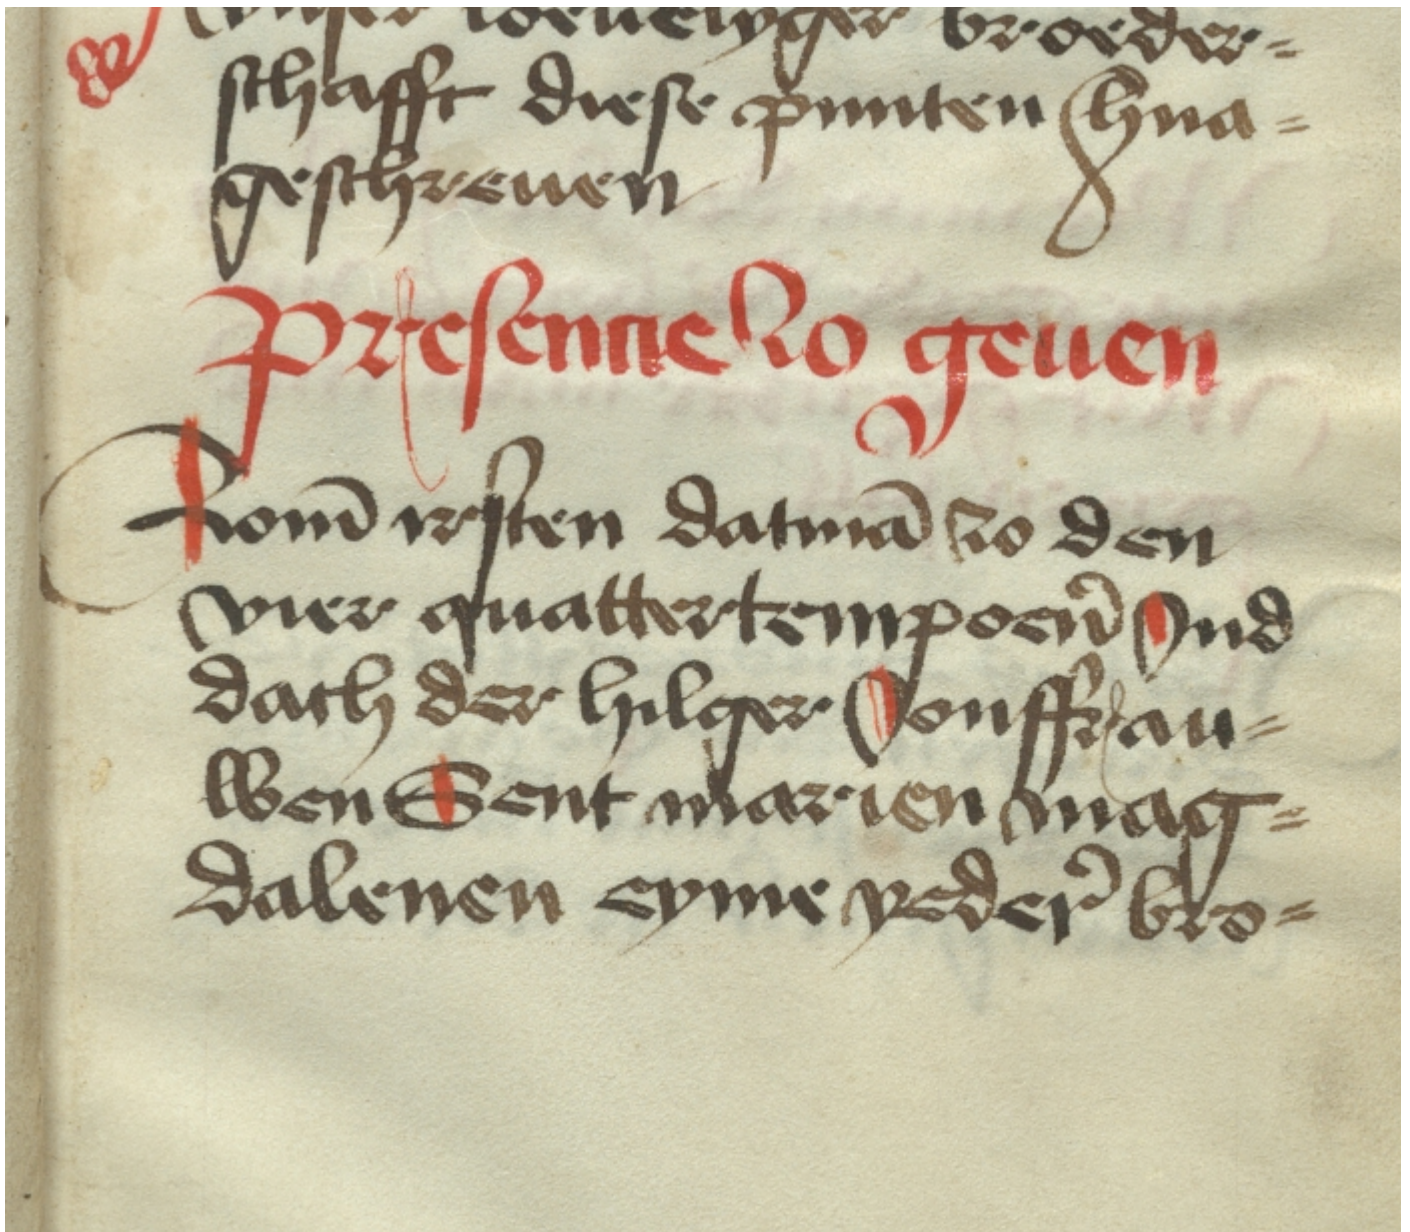 vnser loeuelyger broeder=
schafft diese punten hna=
geschreuen
Presencie zo geuen
Zom̄ irsten datmā zo den
vier quattertempoen̄ Vnd
dach der hilger Jonffrau=
wen Sent marien mag=
dalenen eyme yeder̄ bro=